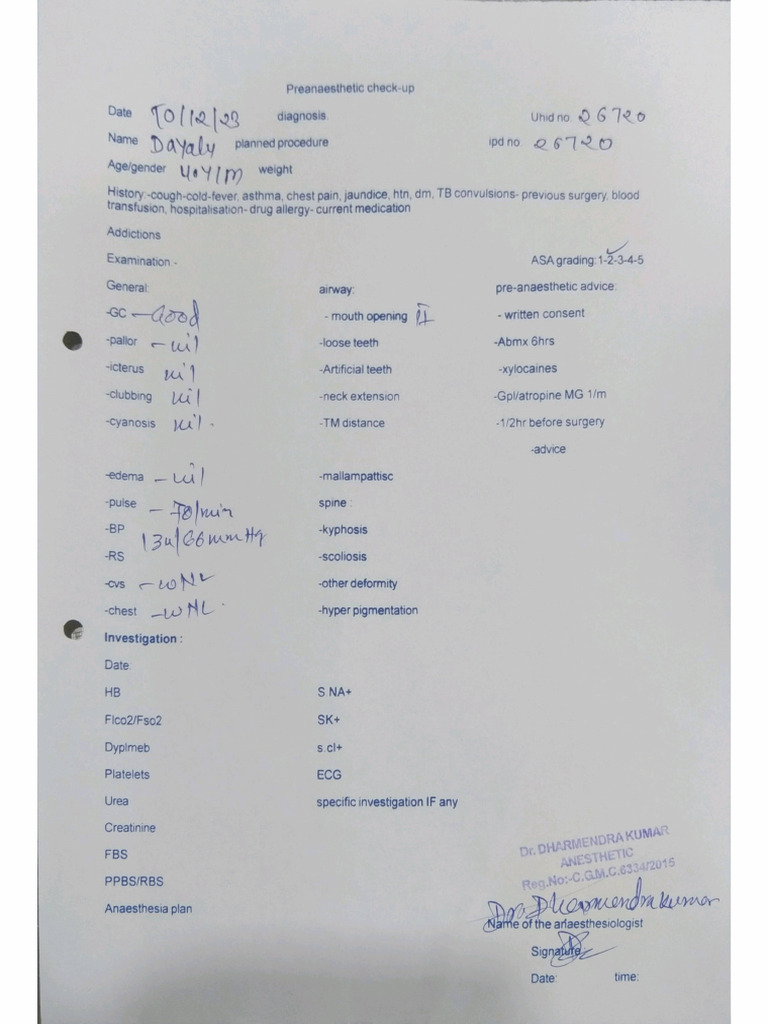 Preanaesthetic check-up
Date 10/12/23 diagnosis Uhid no 26720
Name Dayalu planned procedure ipd no 26720
Age/gender 40Y/M weight
History:-cough-cold-fever, asthma, chest pain, jaundice, htn, dm, TB convulsions- previous surgery, blood
transfusion, hospitalisation- drug allergy- current medication
Addictions
Examination:- ASA grading:1-2-3-4-5
General: airway: pre-anaesthetic advice:
-GC - Good - mouth opening II - written consent
-pallor - nil -loose teeth -Abmx 6hrs
-icterus nil -Artificial teeth -xylocaines
-clubbing nil -neck extension -Gpl/atropine MG 1/m
-cyanosis nil. -TM distance -1/2hr before surgery
-advice
-edema - nil -mallampattisc
-pulse - 78/min spine :
-BP 134/66mmHg -kyphosis
-RS -scoliosis
-cvs - WNL -other deformity
-chest - WNL. -hyper pigmentation
Investigation :
Date:
HB S.NA+
Flco2/Fso2 SK+
Dyplmeb s.cl+
Platelets ECG
Urea specific investigation IF any
Creatinine
FBS
PPBS/RBS
Anaesthesia plan
Dr. DHARMENDRA KUMAR
ANESTHETIC
Reg.No:-C.G.M.C.6334/2015
Dr. Dharmendra kumar
Name of the anaesthesiologist
Signature
Date: time: